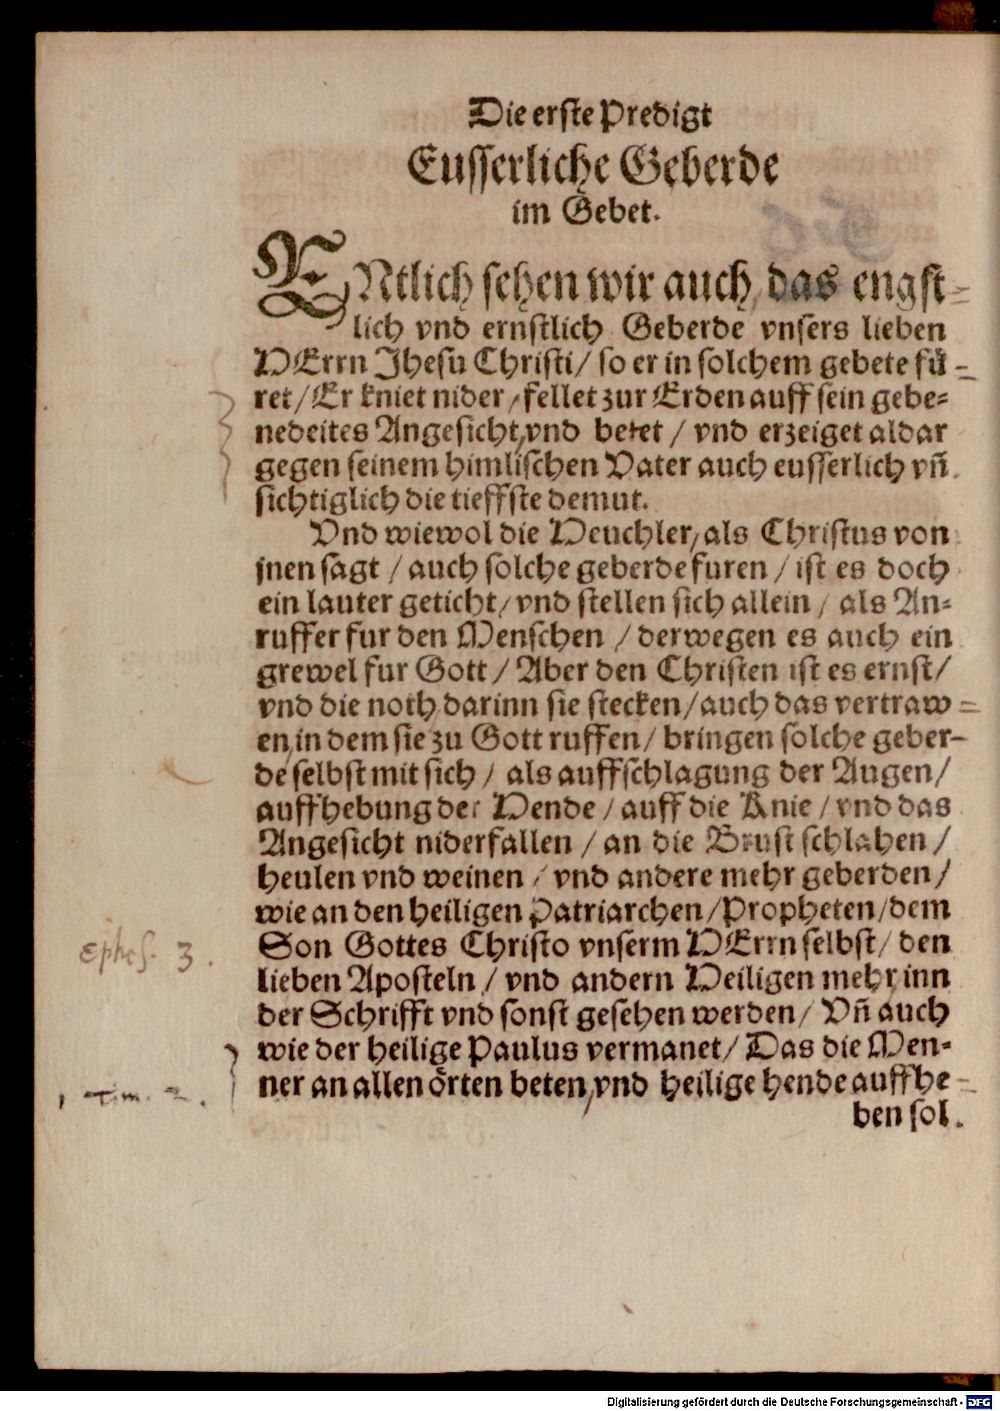 Die erste Predigt
Eusserliche Geberde
im Gebet.
ENtlich sehen wir auch / das engst-
lich vnd ernstlich Geberde vnsers lieben
HErrn Jhesu Christi / so er in solchem gebete fü-
ret / Er kniet nider / fellet zur Erden auff sein gebe-
nedeites Angesicht, vnd betet / vnd erzeiget aldar
gegen seinem himlischen Vater auch eusserlich vñ
sichtiglich die tieffste demut.
Vnd wiewol die Heuchler, als Christus von
jnen sagt / auch solche geberde furen / ist es doch
ein lauter geticht / vnd stellen sich allein / als An-
ruffer fur den Menschen / derwegen es auch ein
grewel fur Gott / Aber den Christen ist es ernst /
vnd die noth darinn sie stecken / auch das vertraw-
en, in dem sie zu Gott ruffen / bringen solche geber-
de selbst mit sich / als auffschlagung der Augen /
auffhebung der Hende / auff die Knie / vnd das
Angesicht niderfallen / an die Brust schlahen /
heulen vnd weinen / vnd andere mehr geberden /
wie an den heiligen Patriarchen / Propheten / dem
Ephes. 3. Son Gottes Christo vnserm HErrn selbst / den
lieben Aposteln / vnd andern Heiligen mehr, inn
der Schrifft vnd sonst gesehen werden / Vñ auch
wie der heilige Paulus vermanet / Das die Men-
1 Tim. 2. ner an allen örten beten, vnd heilige hende auffhe-
ben sol.
Digitalisierung gefördert durch die Deutsche Forschungsgemeinschaft - DFG